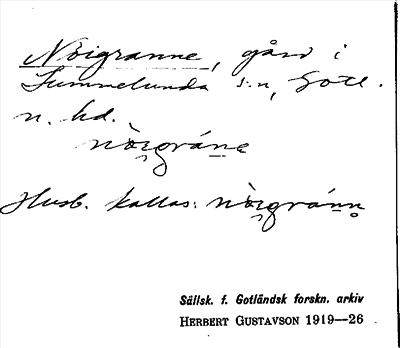 Nörgranne, gård i
Lummelunda s:n, Gotl.
n. hd.
nòrgráne
Husb. kallas: nòrgránn
Sällsk. f. Gotländsk forskn. arkiv
HERBERT GUSTAVSON 1919—26